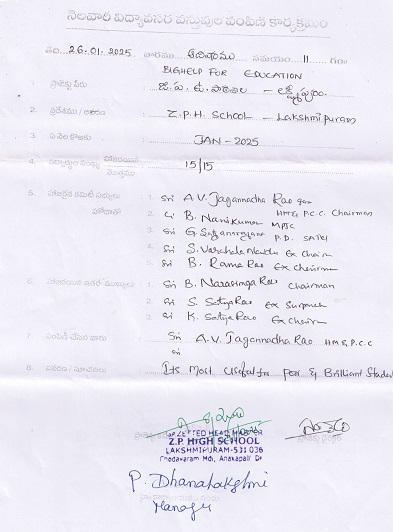 నెలవారీ విద్యావసర వస్తువుల పంపిణీ కార్యక్రమం
తేది. 26.01.2025 వారము ఆదివారము సమయం 11 గం॥
BIGHELP FOR EDUCATION
1. ప్రాజెక్టు పేరు జి.ప.ఉ. పాఠశాల - లక్ష్మీపురం.
2. ప్రదేశము / Z.P.H. School - Lakshmipuram
3. ఏ నెల కొరకు JAN-2025
4. విద్యార్థుల సంఖ్య హాజరయిన మొత్తము 15/15
5. హాజరైన కమిటీ సభ్యులు 1. Sri A.V. Jagannadha Rao
HM & P.C.C. Chairman
2. B. Nani Kumar MPTC
3. Sri G. Satyanarayana P.D.
4. Sri S. Ex Chair
5. Sri B. Rama Rao Ex Chairman
6. హాజరయిన ఇతర ముఖ్యులు 1. Sri B. Narasinga Rao Chairman
2. Sri S. Satya Rao Ex Surpanch
3. Sri K. Satya Rao Ex Chairm
7. పంపిణీ చేసిన వారు Sri A.V. Jagannadha Rao HM & P.C.C
Sri
8. సూచనలు Its Most Useful for Poor & Brilliant Student
GAZETTED HEAD MASTER
Z.P. HIGH SCHOOL
LAKSHMIPURAM-531 036
Chodavaram Mdl, Anakapalli Dt
P. Dhanalakshmi
Manager